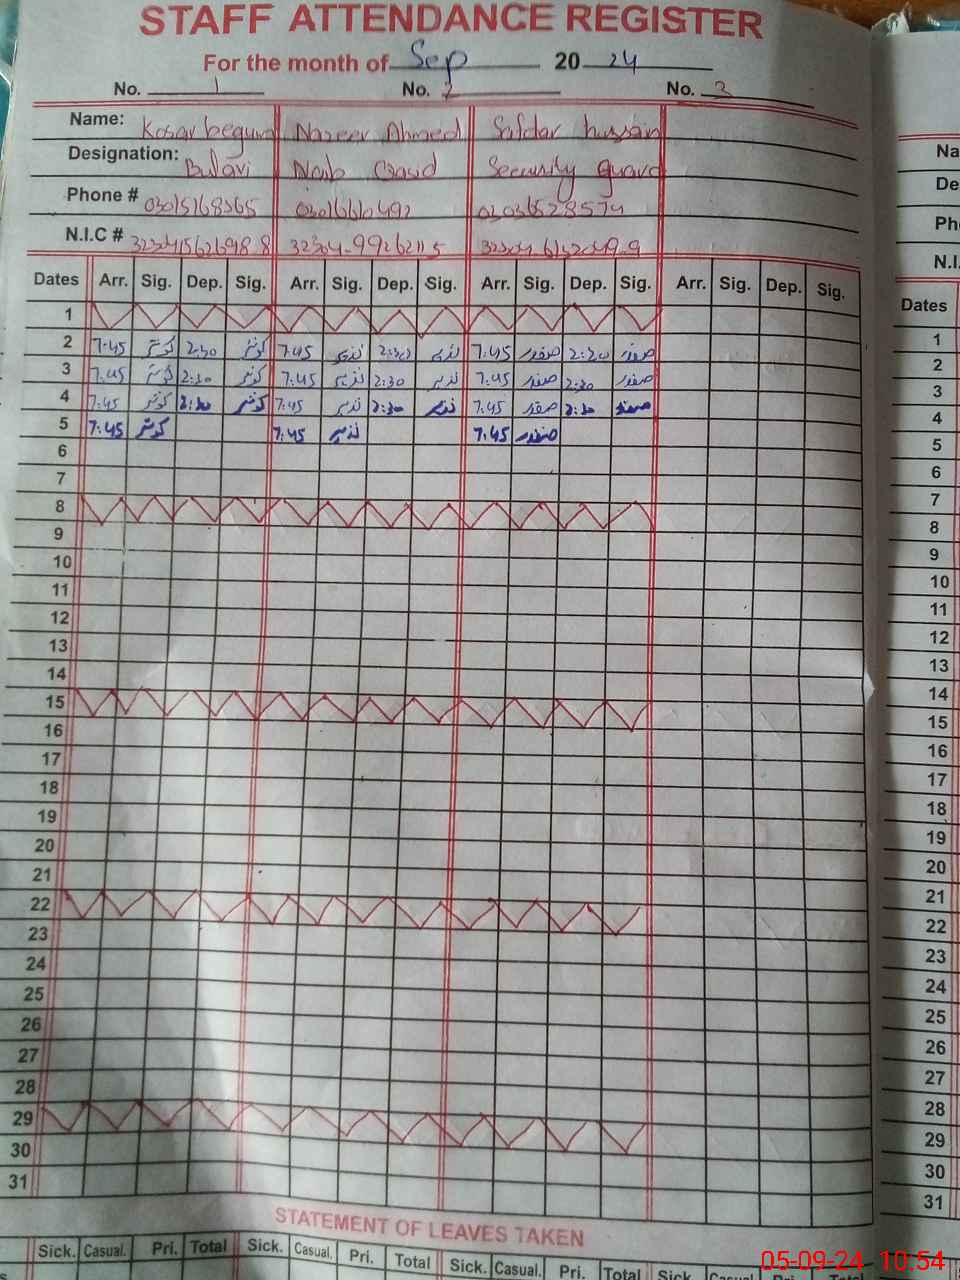 STAFF ATTENDANCE REGISTER
For the month of Sep 20 24
No. 1 No. 2 No. 3
Name: Kosar begum Nazeer Ahmed Safdar hussain
Designation: Bulavi Naib Security guard
Phone # 03015168565 03016610492 03036528574
N.I.C #
Dates Arr. Sig. Dep. Sig. Arr. Sig. Dep. Sig. Arr. Sig. Dep. Sig. Arr. Sig. Dep. Sig.
1
2 7:45 کوثر 2:30 کوثر 7:45 نذیر 2:30 نذیر 7:45 صفدر 2:30 صفدر
3 7:45 کوثر 2:30 کوثر 7:45 نذیر 2:30 نذیر 7:45 صفدر 2:30 صفدر
4 7:45 کوثر 2:30 کوثر 7:45 نذیر 2:30 نذیر 7:45 صفدر 2:30 صفدر
5 7:45 کوثر 7:45 نذیر 7:45 صفدر
6
7
8
9
10
11
12
13
14
15
16
17
18
19
20
21
22
23
24
25
26
27
28
29
30
31
STATEMENT OF LEAVES TAKEN
Sick. Casual. Pri. Total Sick. Casual. Pri. Total Sick. Casual. Pri. Total Sick. Casual.
Na
De
Ph
N.I.
Dates
1
2
3
4
5
6
7
8
9
10
11
12
13
14
15
16
17
18
19
20
21
22
23
24
25
26
27
28
29
30
31
05-09-24 10:54